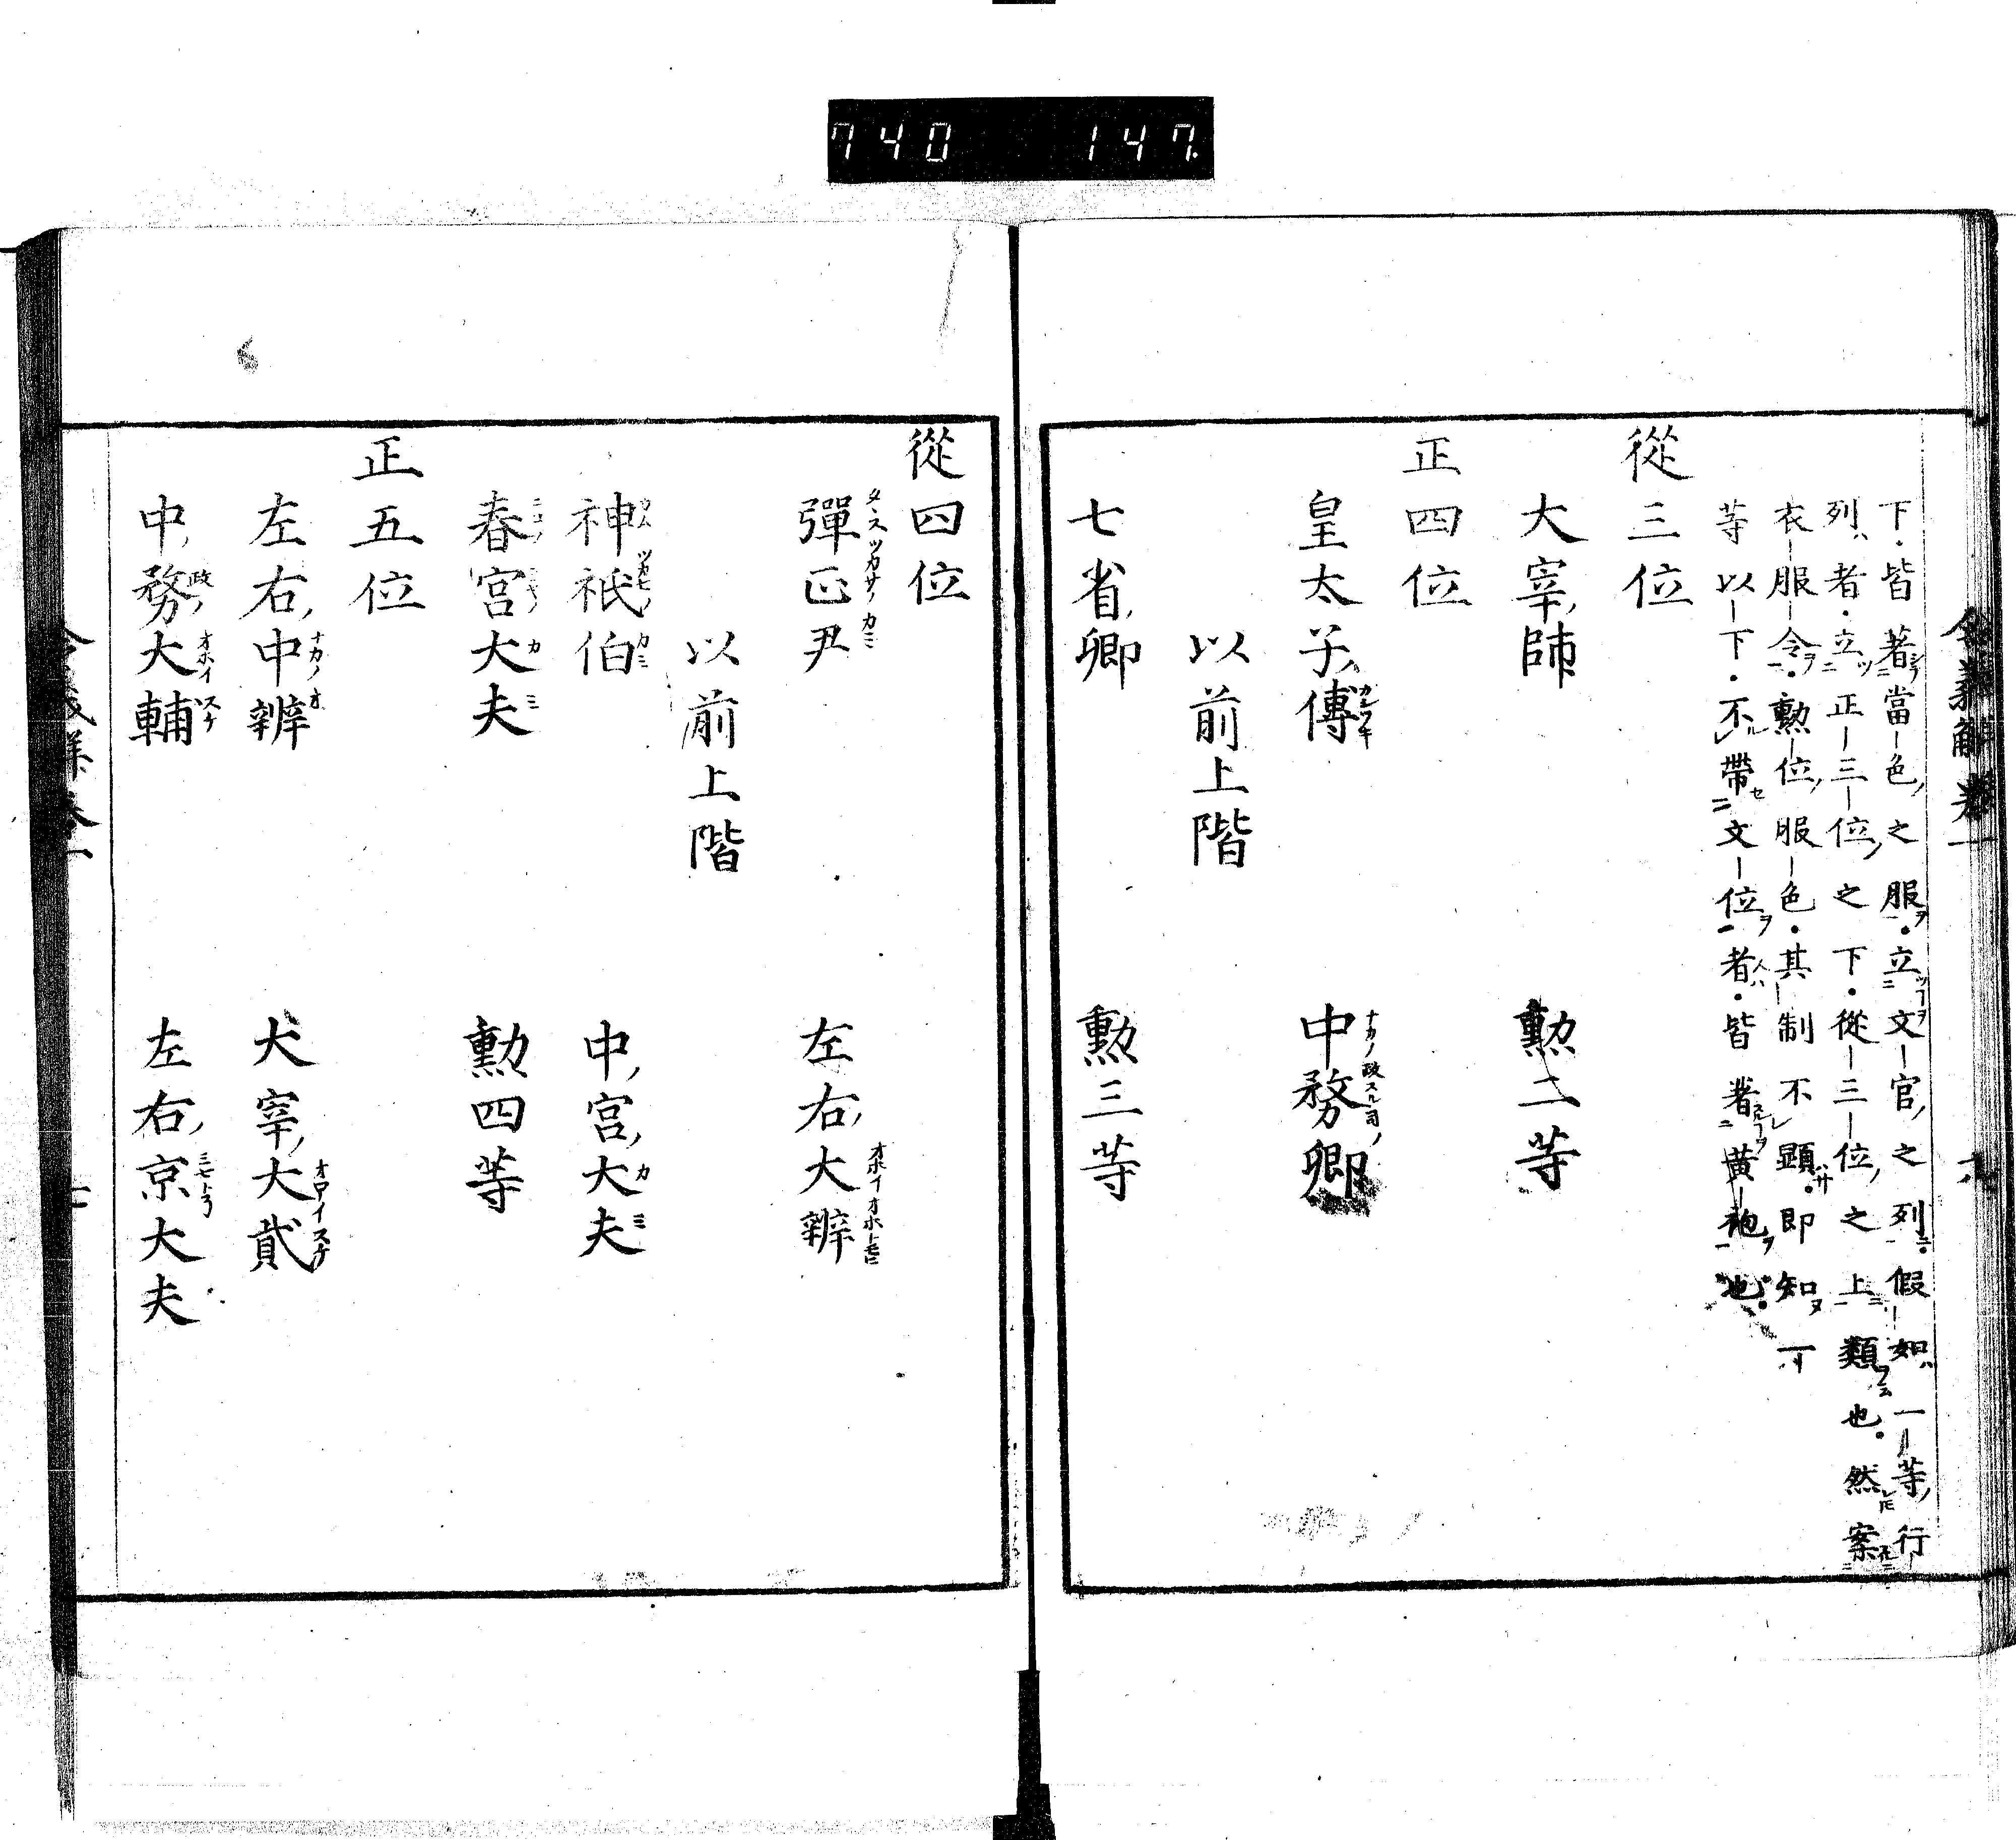 740 147.
令義解卷一
下皆著當色之服立文官之列假如一等行
列者立正三位之下從三位之上類也然案
衣服令勲位服色其制不顯即知
等以下不帶文位者皆著黃袍也
從三位
大宰帥 勲二等
正四位
皇太子傅 中務卿
以前上階
七省卿 勲三等
從四位
彈正尹 左右大辨
以前上階
神祇伯 中宮大夫
春宮大夫 勲四等
正五位
左右中辨 大宰大貳
中務大輔 左右京大夫